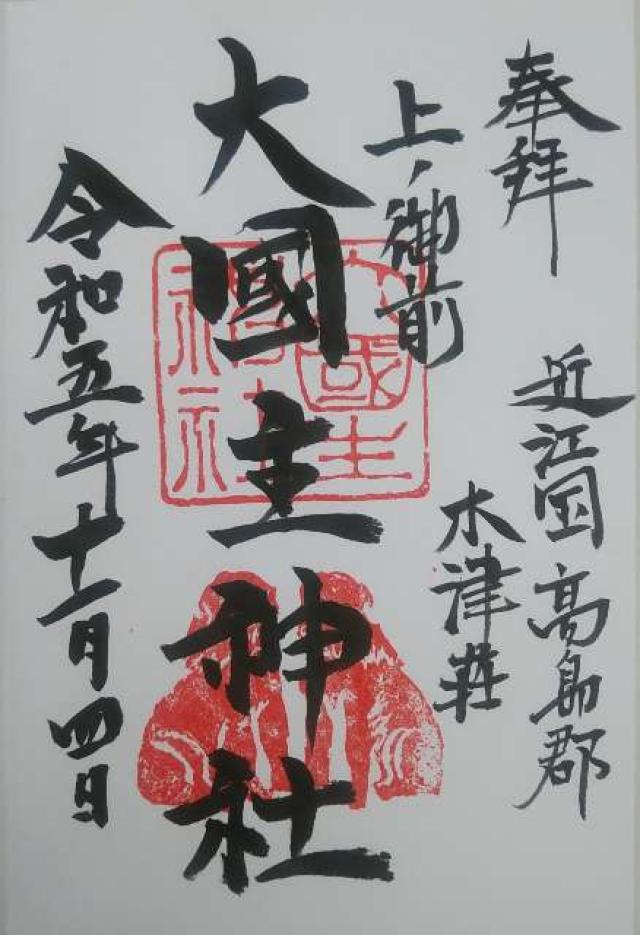 奉拝
近江国高島郡
木津荘
上ノ御前
大國主神社
大國主神社
令和五年十一月四日